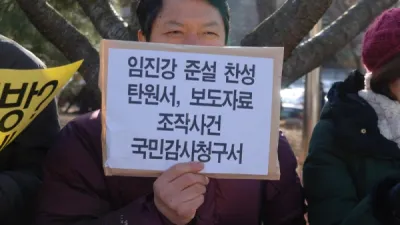 임진강 준설 찬성
탄원서, 보도자료
조작사건
국민감사청구서
방?